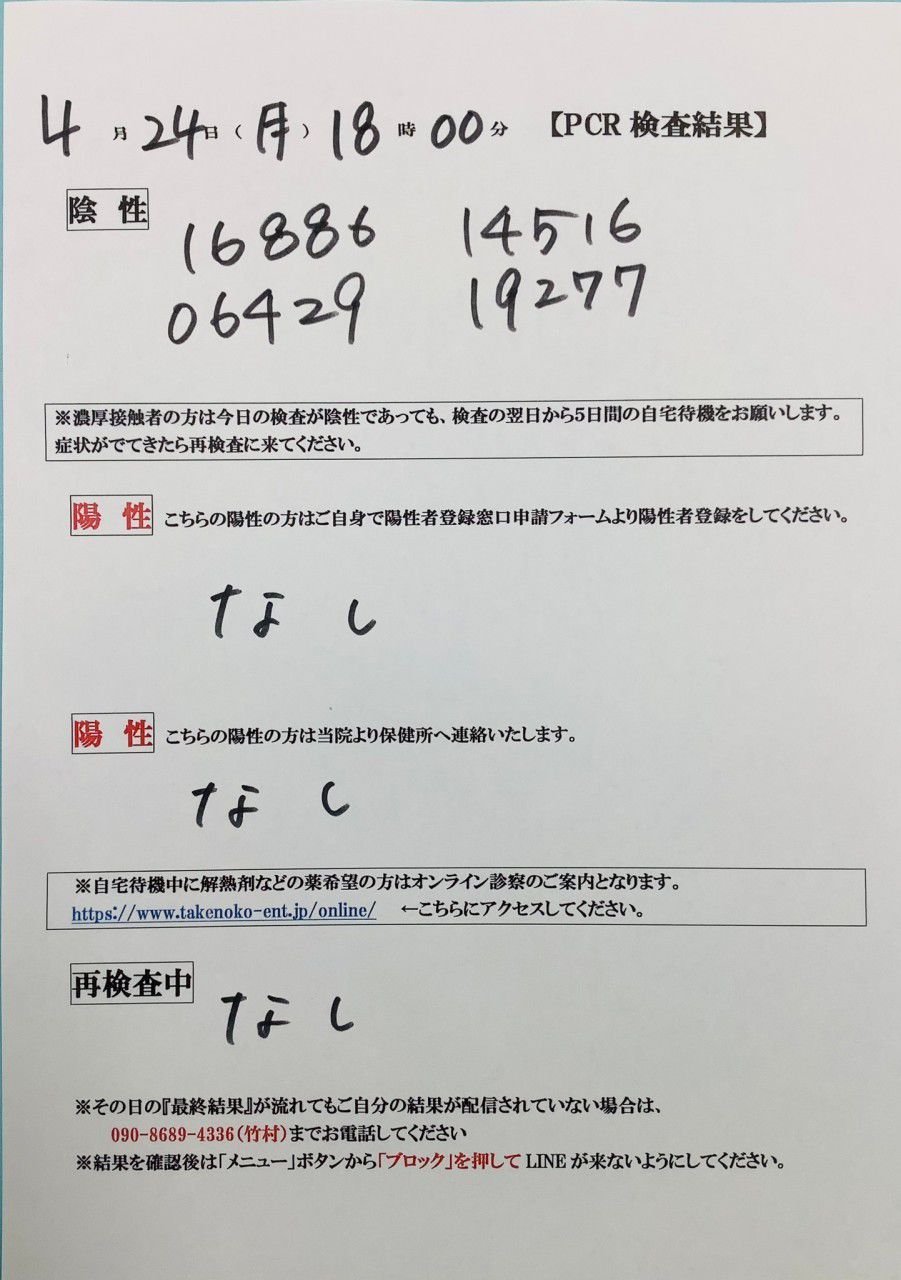 4月24日(月)18時00分 【PCR検査結果】
陰 性
16886 14516
06429 19277
※濃厚接触者の方は今日の検査が陰性であっても、検査の翌日から5日間の自宅待機をお願いします。
症状がでてきたら再検査に来てください。
陽 性 こちらの陽性の方はご自身で陽性者登録窓口申請フォームより陽性者登録をしてください。
なし
陽 性 こちらの陽性の方は当院より保健所へ連絡いたします。
なし
※自宅待機中に解熱剤などの薬希望の方はオンライン診察のご案内となります。
https://www.takenoko-ent.jp/online/ ←こちらにアクセスしてください。
再検査中
なし
※その日の『最終結果』が流れてもご自分の結果が配信されていない場合は、
090-8689-4336(竹村)までお電話してください
※結果を確認後は「メニュー」ボタンから「ブロック」を押して LINE が来ないようにしてください。